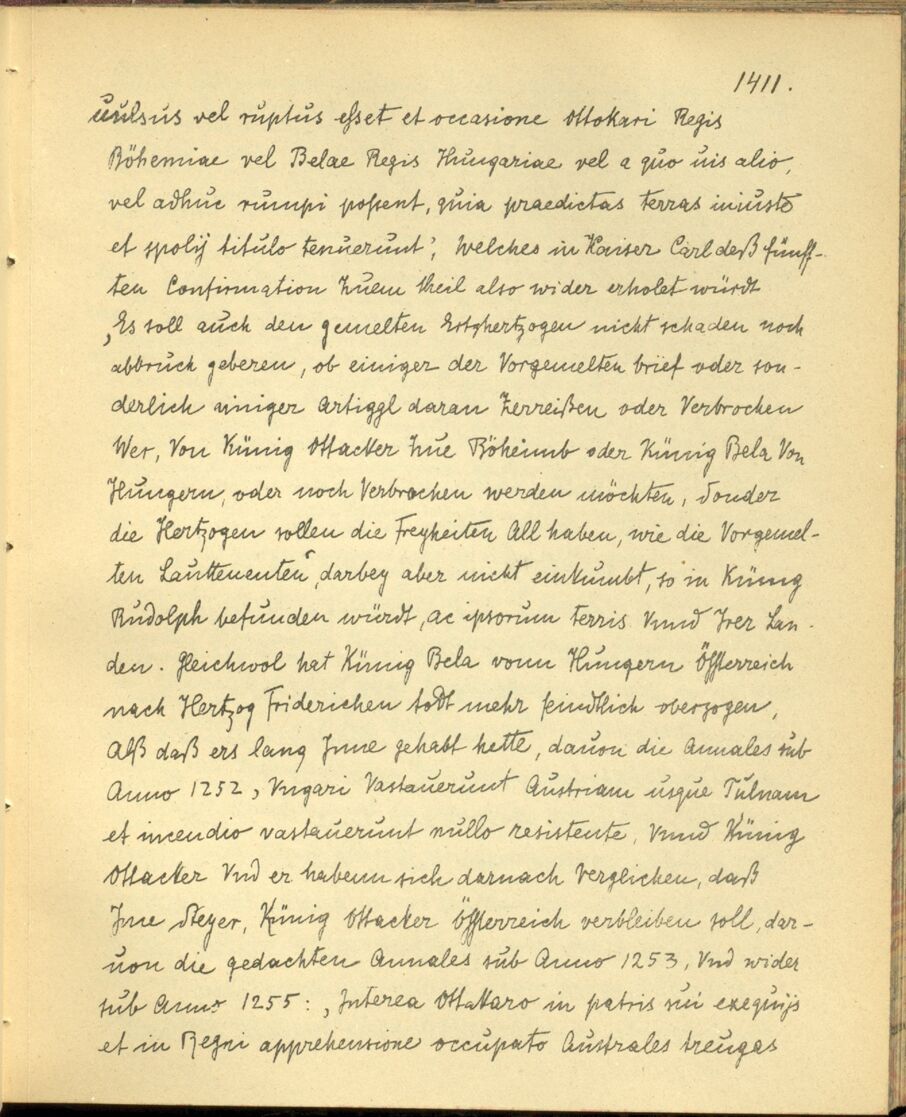 1411.
uulsus vel ruptus esset et occasione Ottokari Regis
Böhemiae vel Belae Regis Hungariae vel a quo uis alio,
vel adhuc rumpi possent, quia praedictas terras iniuste
et spolij titulo tenuerunt‘, Welches in Kaiser Carl deß fünff-
ten Confirmation Zuem theil also wider erholet würdt
„Es soll auch den gemelten Ertzhertzogen nicht schaden noch
abbruch geberen, ob einiger der Vorgemelten brief oder son-
derlich einiger Artiggl daran Zerreißen oder Verbrochen
Wer, Von Künig Ottacker Zue Böheimb oder Künig Bela Von
Hungern, oder noch Verbrochen werden möchten, Sonder
die Hertzogen sollen die Freyheiten All haben, wie die Vorgemel-
ten Lauttenenten“, darbey aber nicht einkumbt, so in Künig
Rudolph befunden würdt, ac ipsorum terris Vnnd Irer Lan-
den. Gleichwol hat Künig Bela vonn Hungern Össterreich
nach Hertzog Friderichen todt mehr feindtlich oberzogen,
Alß daß ers lang Inne gehabt hette, dauon die Annales sub
Anno 1252, Vngari Vastauerunt Austriam usque Tulnam
et incendio vastauerunt nullo resistente, Vnnd Künig
Ottacker Vnd er habenn sich darnach Verglichen, daß
Ime Steyer, Künig Ottacker Össterreich verbleiben soll, dar-
uon die gedachten Annales sub Anno 1253, Vnd wider
sub Anno 1255: „Interea Ottakaro in patris sui exequijs
et in Regni apprehensione occupato Australes treugas